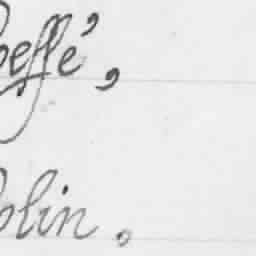 beffé,
olin.